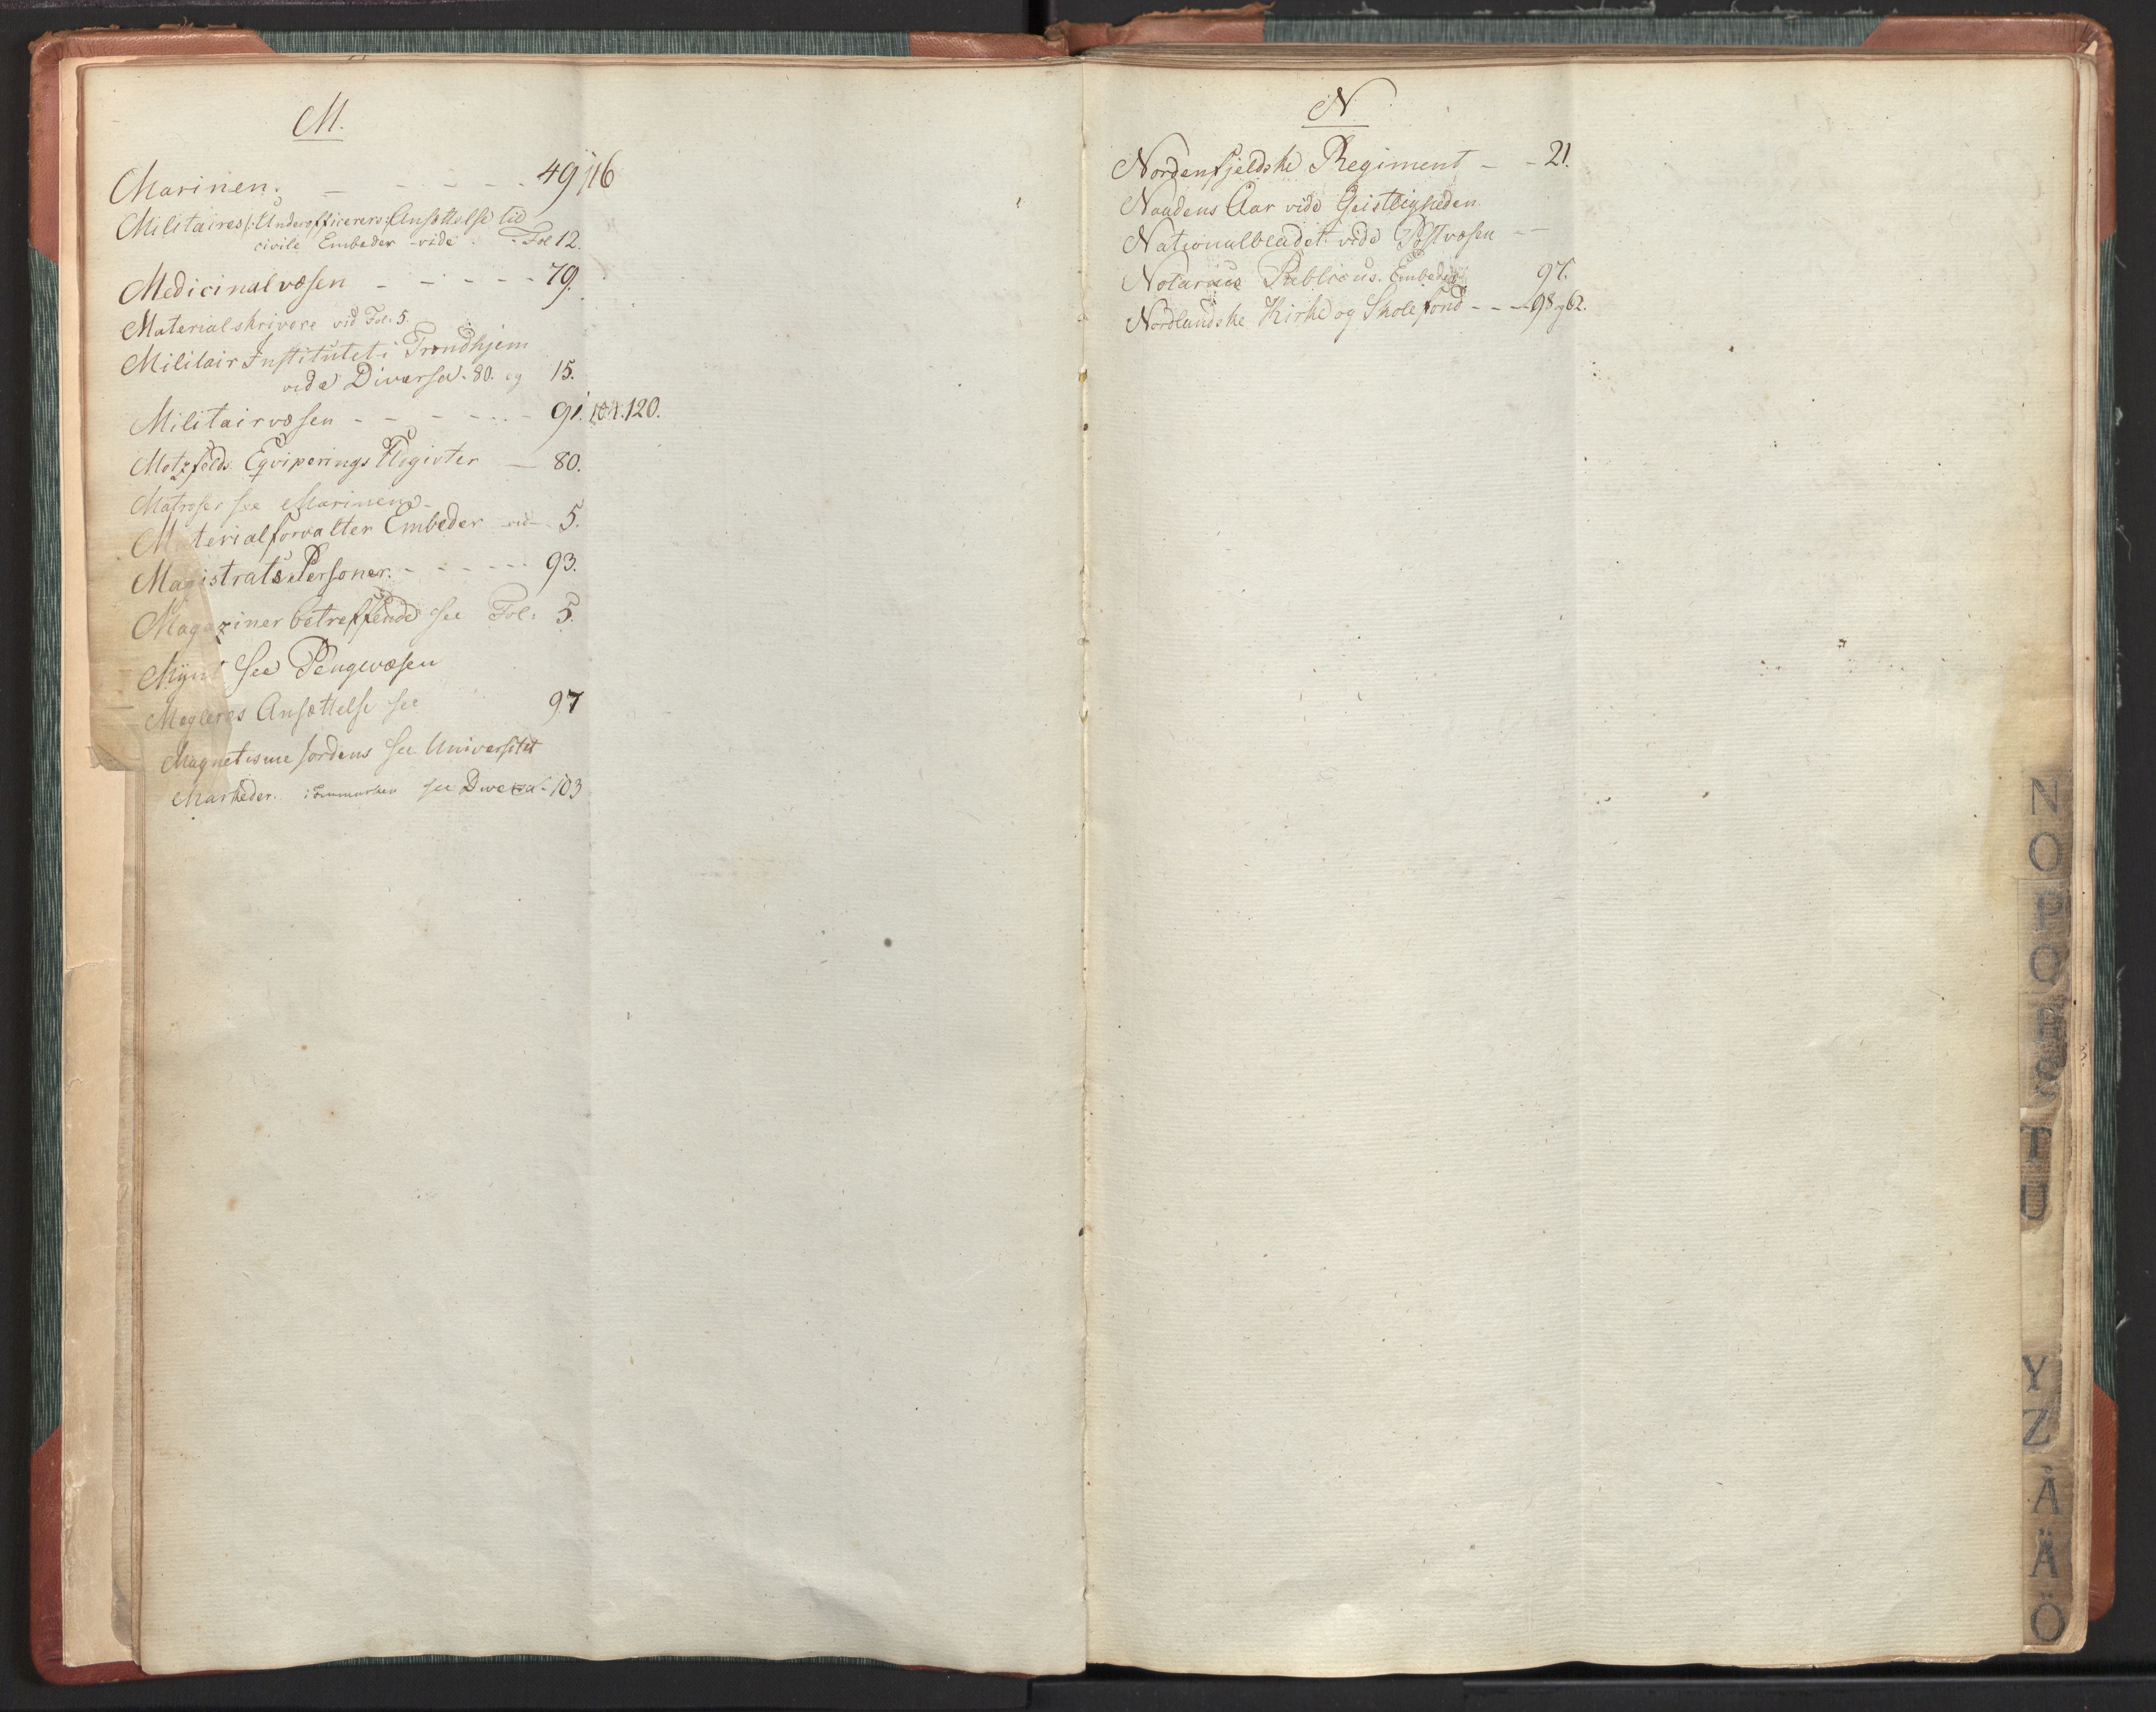 M.
Marinen. - - - - - 49, 116
Militaires /: Underofficerers :/ Ansættelse til
civile Embeder vide . Fol 12.
Medicinalvæsen - - - - - 79.
Materialskrivere vid Fol. 5.
Militair Institutet i Trondhjem
vide Diverse. 80. og 15.
Militairvæsen - - - - - 91. 104. 120.
Motzfeldts Eqviperings - 80.
Matroser see Marinen.
Materialforvalter Embeder vid 5.
Magistrats Personer. - - - - - 93.
Magaziner betreffende see Fol: 5.
Mynt see Pengevæsen
Mægleres Ansættelse see 97
Magnetisme Jordens see Universitet
Markeder. i Finmarken see Diversa - 103
N
Nordenfjeldske Regiment - - 21.
Naadens Aar vide Geistligheden.
Nationalbladet vide Postvæsen - -
Notarius Publicus. Embeder 97.
Nordlandske Kirke og Skole fond - - - 98 og 62.
N
O
P
Q
R
S
T
U
Y
Z
Å
Ä
Ö